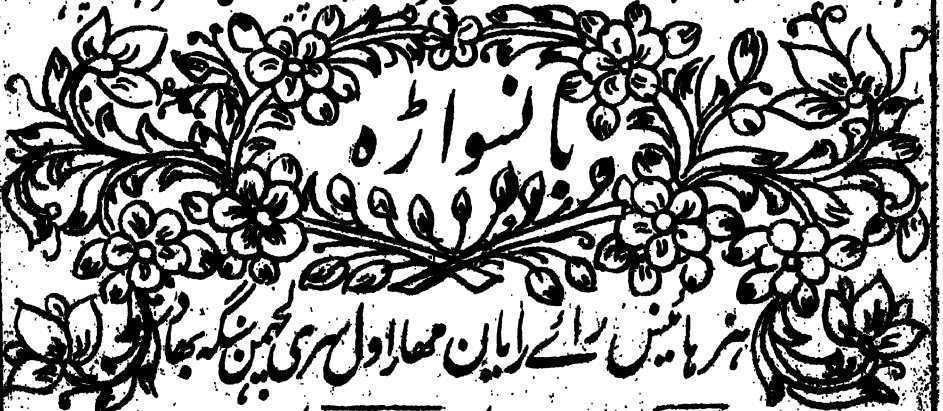 بانسواڑہ
ہزہائینس رائے رایان مہاراول سری لچھمن سنگہ بہا